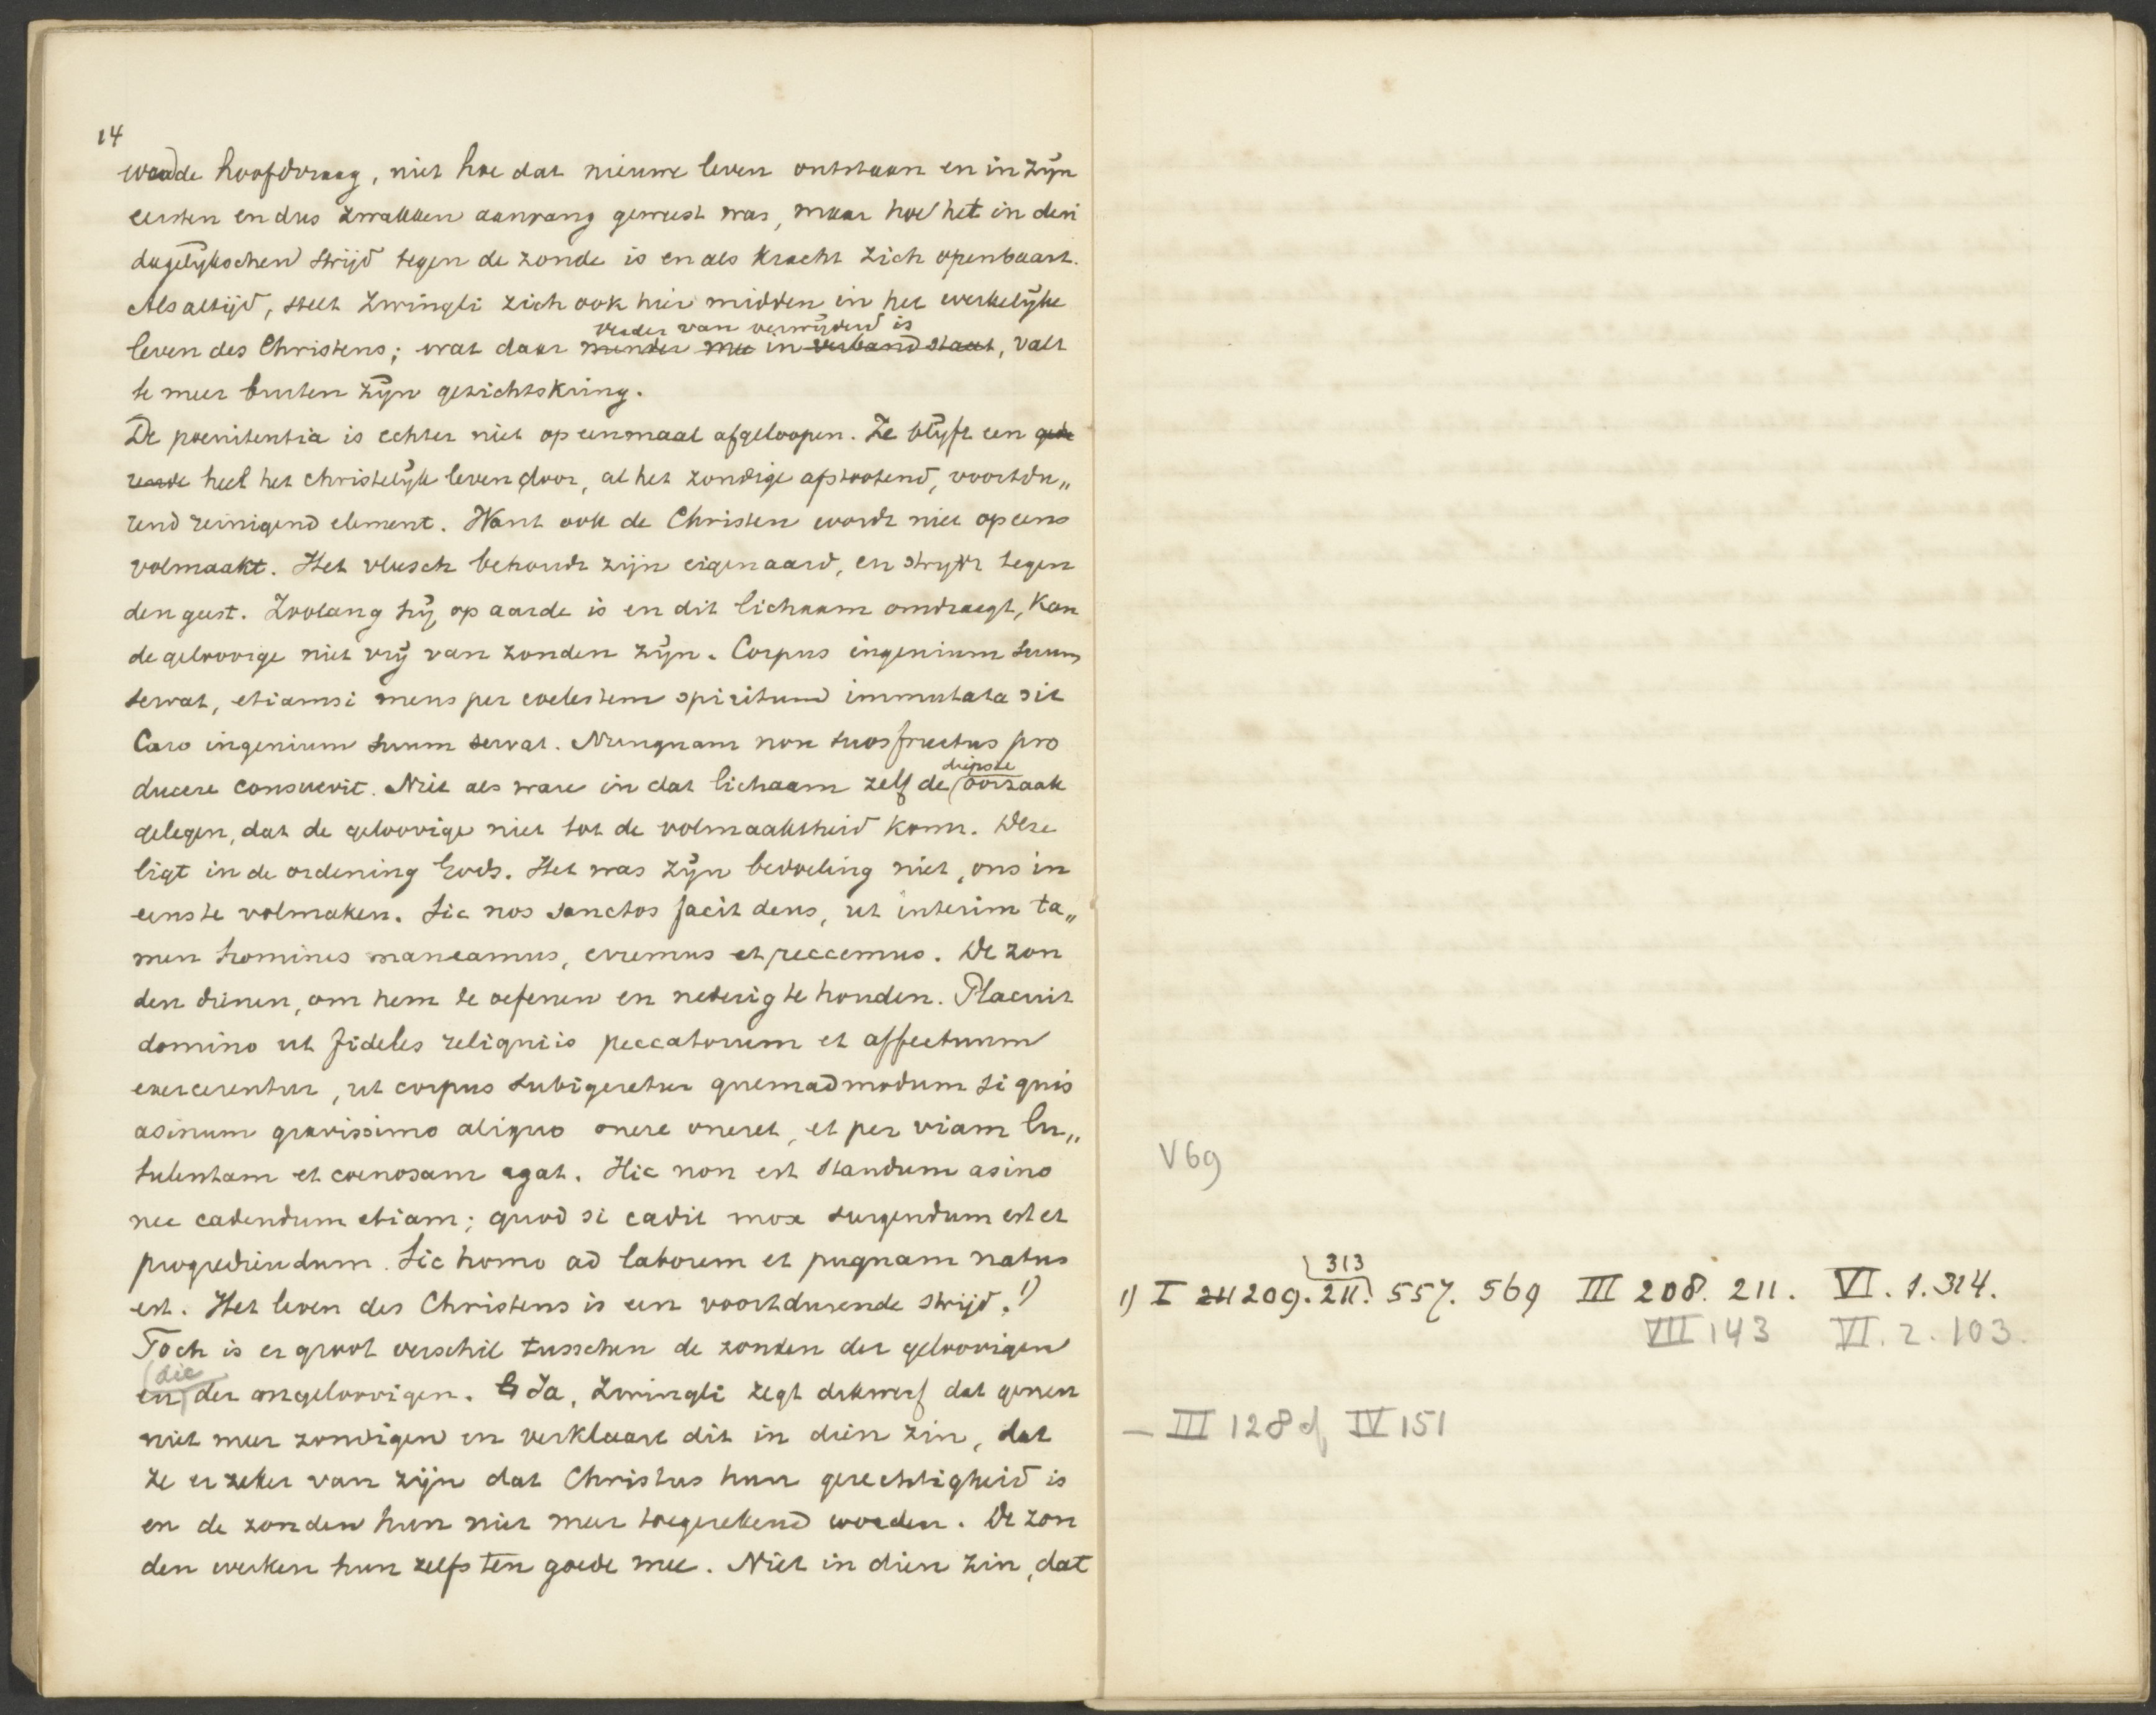 14
waade hoofdvraag, niet hoe dat nieuwe leven ontstaan en in zijn
eersten en dus zwakken aanvang geweest was, maar hoe het in den
dagelijkschen strijd tegen de zonde is en als kracht zich openbaart.
Als altijd, stelt Zwingli zich ook hier midden in het werkelijke
verder van verwijderd is
leven des Christens; wat daar minder mee in verband staat, valt
te meer buiten zijn gezichtskring.
De poenitentia is echter niet op eenmaal afgeloopen. Ze blijft een gedu
rende heel het christelijk leven door, al het zondige afstootend, voortdu„
rend reinigend element. Want ook de Christen wordt niet opeens
volmaakt. Het vleesch behoudt zijn eigenaard, en strijdt tegen
den geest. Zoolang hij op aarde is en dit lichaam omdraagt, kan
de geloovige niet vrij van zonden zijn. Corpus ingenium suum
servat, etiamsi mens per coelestem spiritum immutata sit
Caro ingenium suum servat. Nunquam non suos fructus pro
diepste
ducere consuevit. Niet als ware in dat lichaam zelf de oorzaak
gelegen, dat de geloovige niet tot de volmaaktheid komt. Deze
ligt in de ordening Gods. Het was zijn bedoeling niet, ons in
eens te volmaken. Sic nos sanctos facit deus, ut interim ta„
men homines maneamus, erremus et peccemus. De zon
den dienen, om hem te oefenen en nederig te houden. Placuit
domino ut fideles reliquiis peccatorum et affectuum
exercerentur, ut corpus subigeretur quemadmodum si quis
asinum gravissimo aliquo onere oneret, et per viam lu„
tulentam et coenosam agat. Hic non est standum asino
nec cadendum etiam; quod si cadit mox surgendum est et
progrediendum. Sic homo ad laborem et pugnam natus
est. Het leven des Christens is een voortdurende strijd. 1)
Toch is er groot verschil tusschen de zonden der geloovigen
die
en der ongeloovigen. Ja, Zwingli zegt dikwerf dat genen
niet meer zondigen en verklaart dit in dien zin, dat
ze er zeker van zijn dat Christus hun gerechtigheid is
en de zonden hun niet meer toegerekend worden. De zon
den werken hun zelfs ten goede mee. Niet in dien zin, dat
V 69
313
1) I 211 209. 211. 557. 569 III 208. 211. VI. 1. 314.
VII 143 VI. 2. 103.
— III 128 cf IV 151